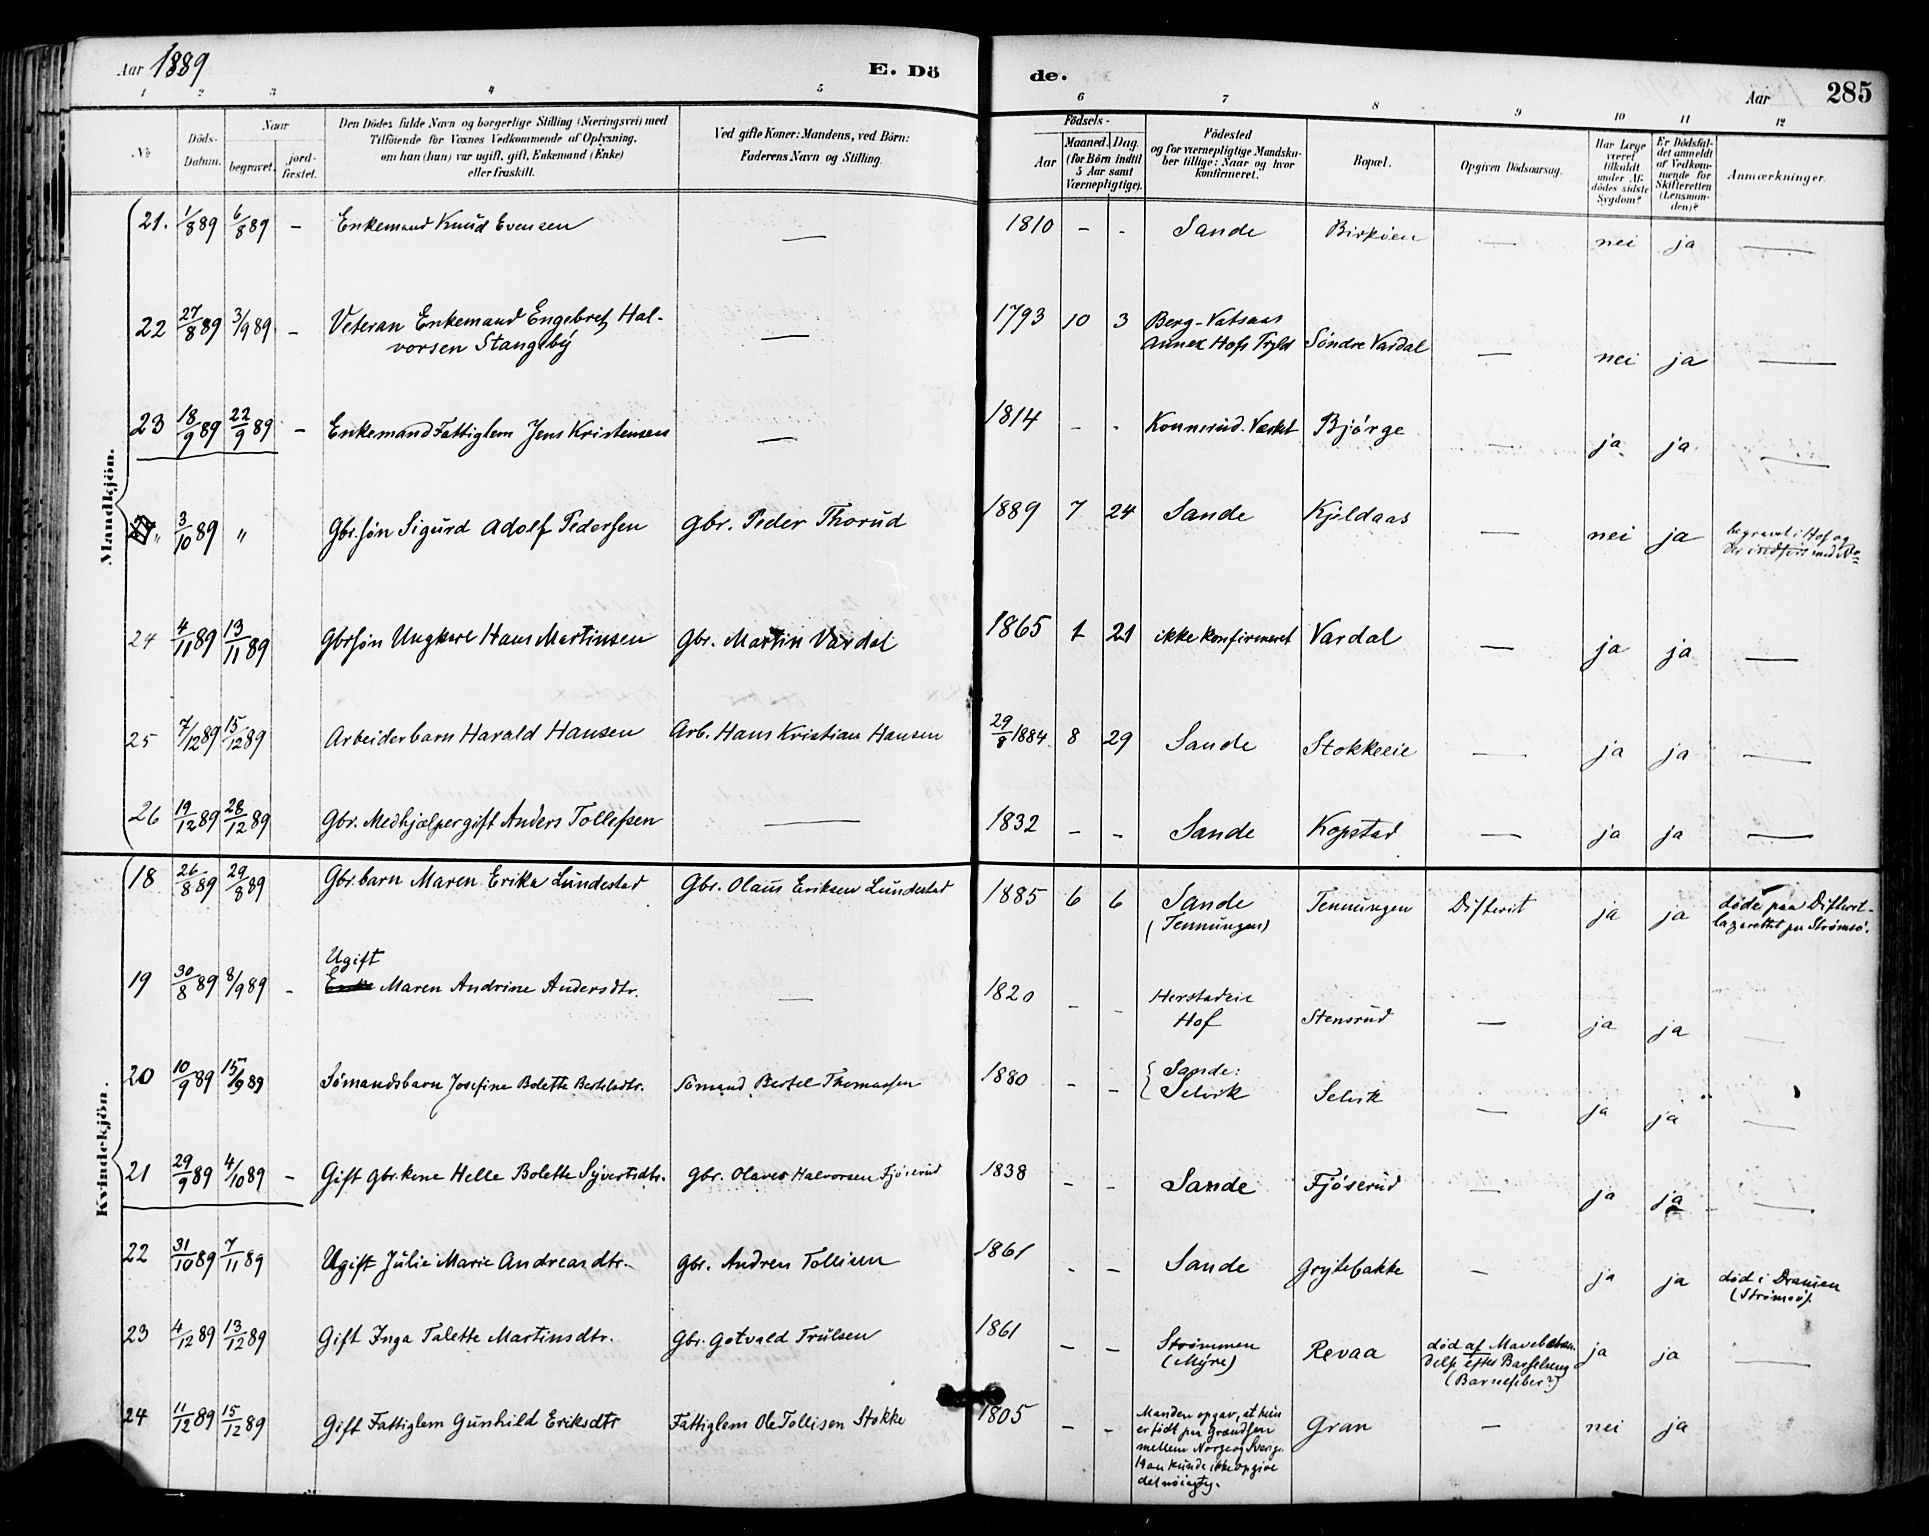 Aar 1889 E. Dö de. Aar 285
1 2 3 4 5 6 7 8 9 10 11 12
№ Döds-Datum. Naar begravet. jordfæstet. Den Dödes fulde Navn og borgerlige Stilling (Næringsvei) med Tilföiende for Voxnes Vedkommende af Oplysning, om han (hun) var ugift, gift, Enkemand (Enke) eller fraskilt. Ved gifte Koner: Mandens, ved Börn: Faderens Navn og Stilling. Födsels- Aar Maaned. Dag. (for Börn indtil 5 Aar samt Værnepligtige). Födested og for værnepligtige Mandskaber tillige: Naar og hvor konfirmeret. Bopæl. Opgiven Dödsaarsag. Har Læge været tilkaldt under Afdödes sidste Sygdom? Er Dödsfaldet anmeldt af Vedkommende for Skifteretten (Lensmanden)? Anmærkninger.
Mandkjön.
21. 1/8 89 6/8 89 – Enkemand Knud Evensen — 1810 - - Sande Birköen — nei ja —
22 27/8 89 3/9 89 – Veteran Enkemand Engebret Hal-
vorsen Stangeby — 1793 10 3 Berg-Vatsaas
Annex Hofs Prgld Söndre Vardal — nei ja —
23 18/9 89 22/9 89 – Enkemand Fattiglem Jens Kristensen — 1814 - - Konnerud-Værket Bjørge — ja ja —
" 3/10 89 " Gbr.søn Sigurd Adolf Pedersen Gbr. Peder Thorud 1889 7 24 Sande Kjeldaas — nei ja begravet i Hof og
der indført med No=
24 4/11 89 13/11 89 Gbrsøn Ungkarl Hans Martinsen Gbr. Martin Vardal 1865 1 21 ikke konfirmeret Vardal — ja ja —
25 7/12 89 15/12 89 Arbeiderbarn Harald Hansen Arb. Hans Kristian Hansen 29/8 1884 8 29 Sande Stokkeeie — ja ja —
26 19/12 89 28/12 89 Gbr. Medhjælper gift Anders Tollefsen — 1832 - - Sande Kopstad — ja ja —
Kvindekjön.
18 26/8 89 29/8 89 Gbr.barn Maren Erika Lundestad Gbr. Olaus Eriksen Lundestad 1885 6 6 Sande
(Tennungen) Tennungen Difterit ja ja døde paa Difterit-
lazarettet paa Strømsø.
Ugift
19 30/8 89 8/9 89 – Enke Maren Andrine Andersdtr. — 1820 - - Herstadeie
Hof Stensrud — ja ja —
20 10/9 89 15/9 89 Sømandsbarn Josefine Bolette Bertelsdtr. Sømand Bertel Thomassen 1880 - - Sande:
Selvik Selvik — ja ja —
21 29/9 89 4/10 89 – Gift Gbr.kone Helle Bolette Syvertsdtr. Gbr. Olaves Halvorsen Fjöserud 1838 - - Sande Fjöserud — ja ja —
22 31/10 89 7/11 89 Ugift Julie Marie Andreasdtr. Gbr. Andreas Tollisen 1861 - - Sande Grytebakke — ja ja død i Dramen
(Strømsø).
23 4/12 89 13/12 89 Gift Inga Talette Martinsdtr. Gbr. Gotvald Trulsen 1861 - - Strømmen
(Myre) Revaa død af
efter Barselseng
(Barnefeber?) ja ja —
24 11/12 89 15/12 89 Gift Fattiglem Gunhild Eriksdtr Fattiglem Ole Tollisen Stokke 1805 - - Manden opgav, at hun
er født paa Grændsen
mellem Norge og Sverig.
Han kunde ikke opgive
det nøiagtig. Gran — nei ja